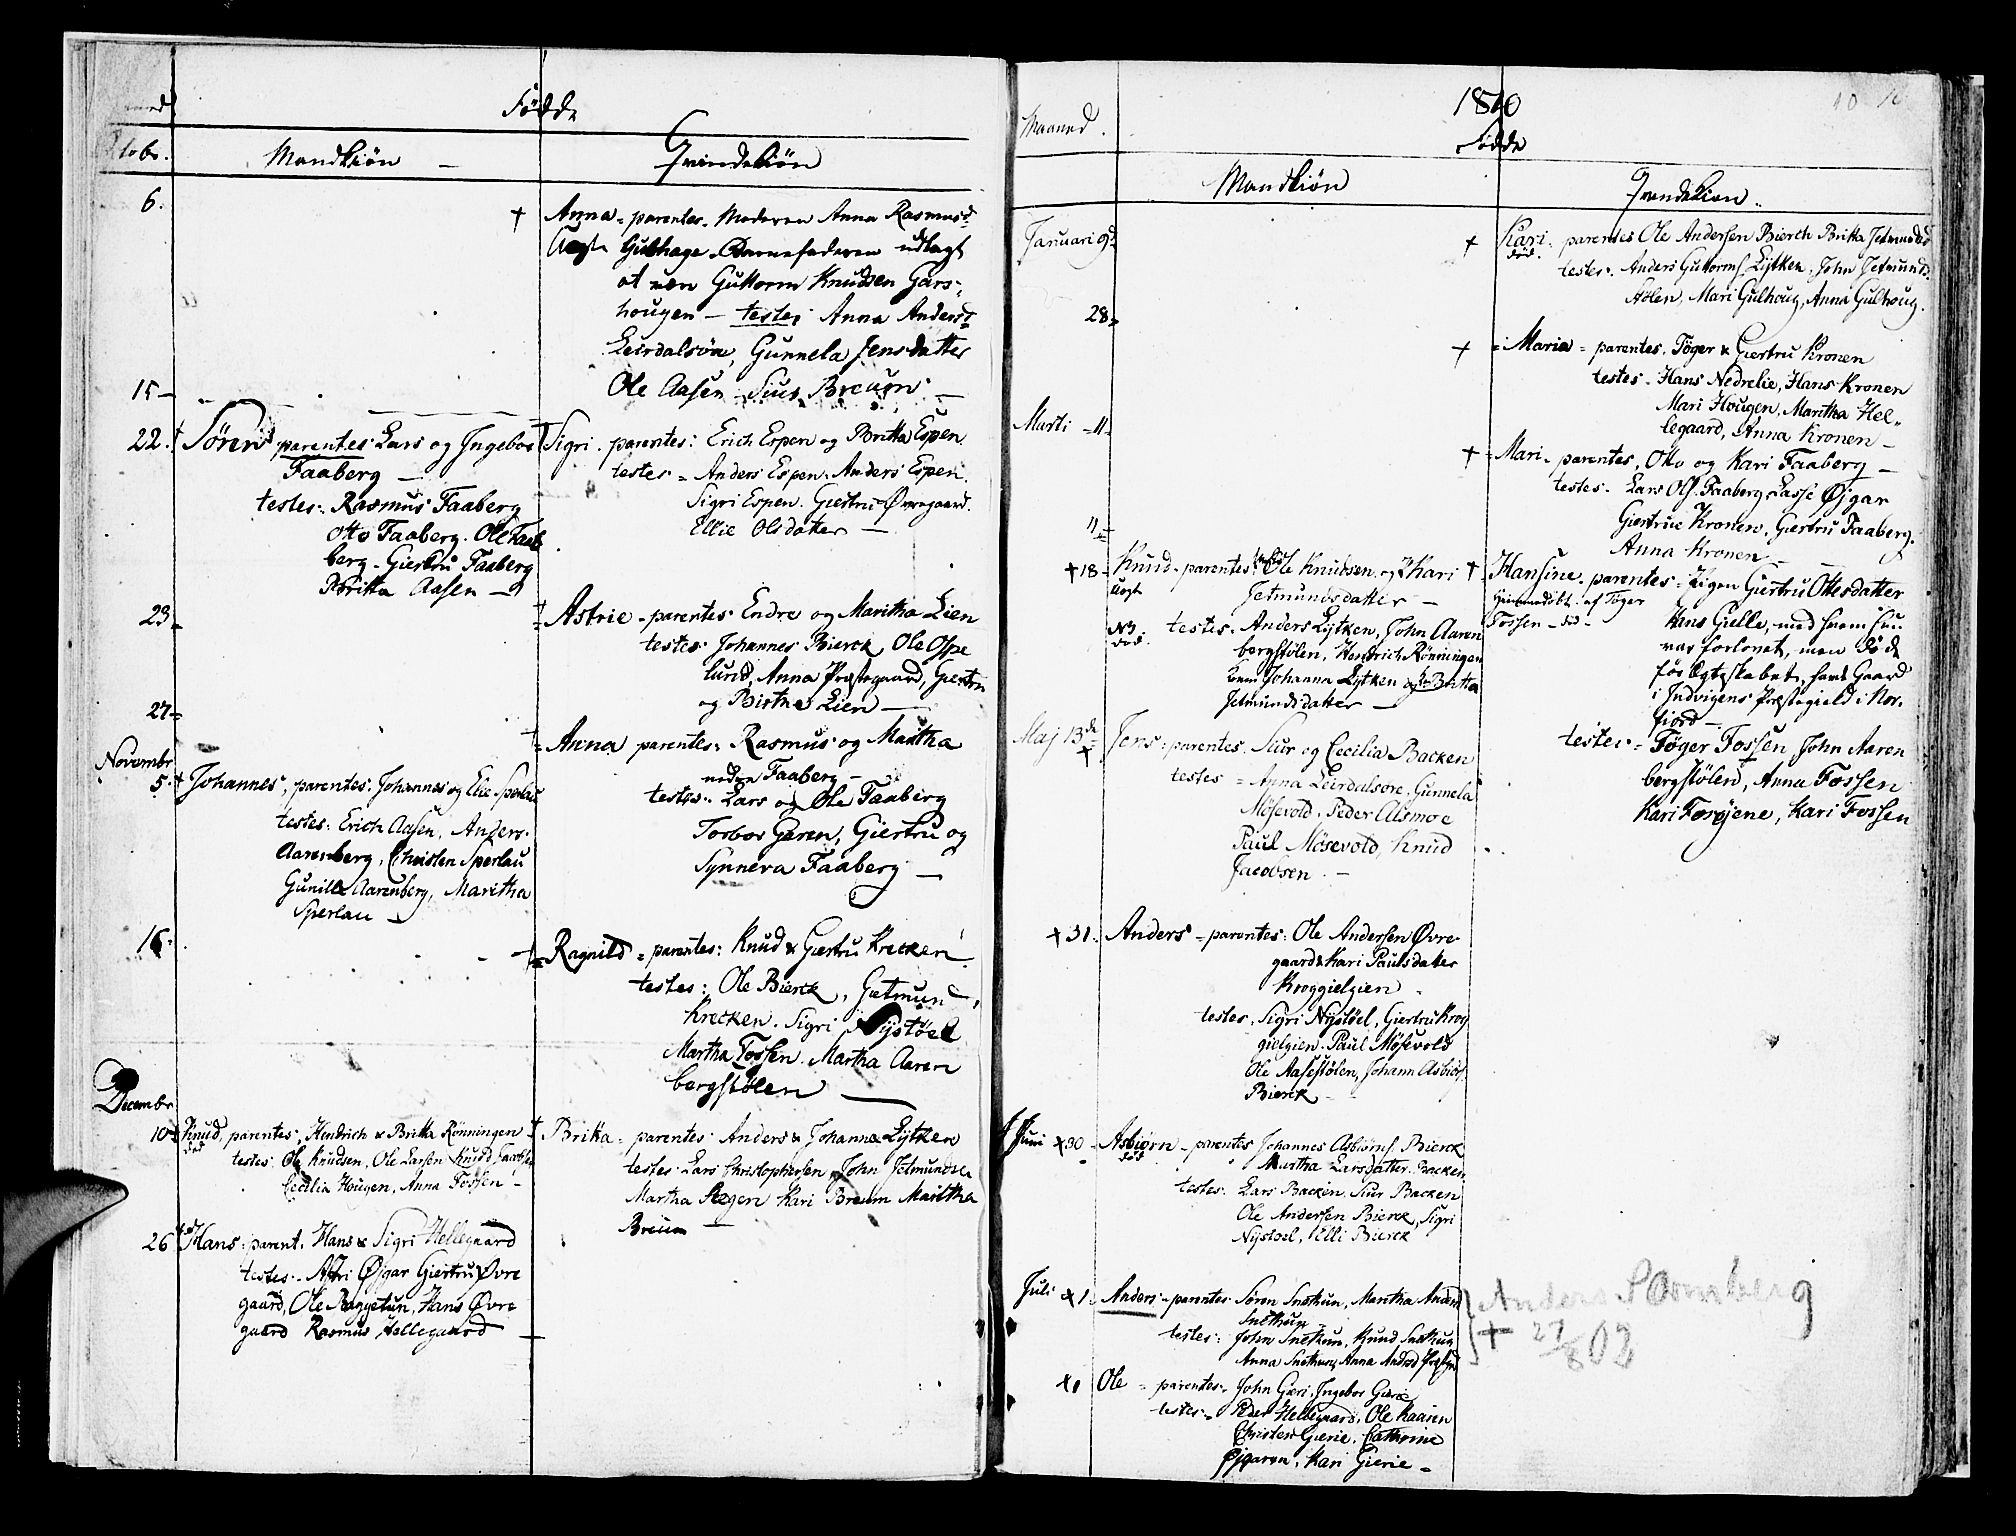 Fødde
Octobr.
Mandkiøn
Qvindekiøn
6.
Anna - parentes. Moderen Anna Rasmusd.
Uægte Gulhage. Barnefaderen udlagt
at være Guttorm Knudsen Gars-
hougen - testes Anna Andersd.
Leirdalsøre, Gunnela Jensdatter
Ole Aasen Siur Breum
15 -
22.
Søren parentes Lars og Ingebor
Faaberg -
testes: Rasmus Faaberg
Otto Faaberg. Ole Faa
berg - Giertru Faaberg
Britta Aasen -
Sigri. parentes: Erich Espen og Britta Espen
testes = Anders Espen. Anders Espen.
Sigri Espen. Giertru Øvregaard.
Ellie Olsdatter -
23
Astrie - parentes Endre og Maritha Lien
testes Johannes Bierck, Ole Ospe
lund, Anna Præstegaard, Giertru
og Birthe Lien -
27
Anna parentes: Rasmus og Maritha
nedre Faaberg -
testes. Lars og Ole Faaberg
Torbor Geren, Giertru og
Synneva Faaberg -
Novembr.
5. Johannes, parentes. Johannes og Elie Sperlau
testes: Erich Aasen, Anders
Aarenberg, Christen Sperlau
Gunille Aarenberg, Maritha
Sperlau -
16.
Ragnild = parentes: Knud & Giertru Krecken
testes: Ole Bierck, Gietmund
Krecken. Sigri Nystøel
Martha Fossen. Martha Aaren
bergstølen
Decembr
10 Knud, parentes, Hendrich & Britta Rönningen
død testes. Ole Knudsen, Ole Larsen Knud Jacobsen
Cecilia Hougen, Anna Fossen -
Britta = parentes: Anders & Johanna Lytken
testes. Lars Christophersen John Jetmundsen
Martha Kari Breum Maritha
Breum -
26 Hans. parent. Hans & Sigri Hellegaard
testes - Astri Øjgar Giertru Øvre
gaard, Ole Bøggetun, Hans Øvre
gaard Rasmus Hellegaard -
1810
10
Maaned.
Fødde
Mandkiøn
Qvindekiøn
Januari 9d
Kari. parentes Ole Andersen Bierck Britta Jetmundsd.
død. testes. Anders Guttormss. Lytken, John Jetmunds.
stølen, Mari Gulhoug, Anna Gulhoug.
28
Maria - parentes. Töger & Giertru Kronen
testes - Hans Nedrelie, Hans Kronen
Mari Hougen, Maritha Hel-
legaard, Anna Kronen -
Marti 11
Mari. parentes, Otto og Kari Faaberg -
testes. Lars Ols. Faaberg, Lasse Øjgar
Giertrue Kronen, Giertru Faaberg.
Anna Kronen -
11
18 Knud - parentes. Ole Knudsen og Kari
uægte Jetmundsdatter -
død. testes. Anders Lytken, John Aaren
bergstølen, Hendrich Rönningen
Johanna Lytken og Britta
Jetmundsdatter -
Hansine. parentes - Pigen Giertru Ottesdatter
Hjemmedøbt af Töger
Fossen - død -
Hans Gielle, med hvem hun
var forlovet, men døde
før Ægteskabet, hans Gaard
i Indvigens Præstegield i Nor-
fiord -
testes - Töger Fossen, John Aaren
bergstølen, Anna Fossen
Kari Forøjene, Kari Fossen
Maj 13de
Jens: parentes. Siur og Cecilia Backen
testes = Anna Leirdalsøre, Gunnela
Mösevold, Peder Alsmoe
Paul Mösevold, Knud
Jacobsen. -
31. Anders - parentes: Ole Andersen Øvre
gaard & Kari Paulsdatter
Kroggielgien
testes. Sigri Nystöel, Giertru Krog
gielgien. Paul Mösevold
Ole Aasestölen, Johann Asbiörs.
Bierck -
Juni 30 - Asbiörn - parentes Johannes Asbiörns. Bierck
død Martha Larsdatter Backen
testes. Lars Backen. Siur Backen
Ole Andersen Bierck, Sigri
Nystoel, Elli Bierck
Juli 1 Anders - parentes Søren Snetun, Maritha Andersd
Snetun
testes: John Snetun, Knud Snetun
Anna Snetun, Anna Andersd
Anders Stomberg
+ 27/8 02
1 Ole = parentes. John Gieri. Ingebor Gierie
testes. Peder Hellegaard, Ole Kaaien
Christen Gierie, Cathrine
Øjgaren, Kari Gierie -